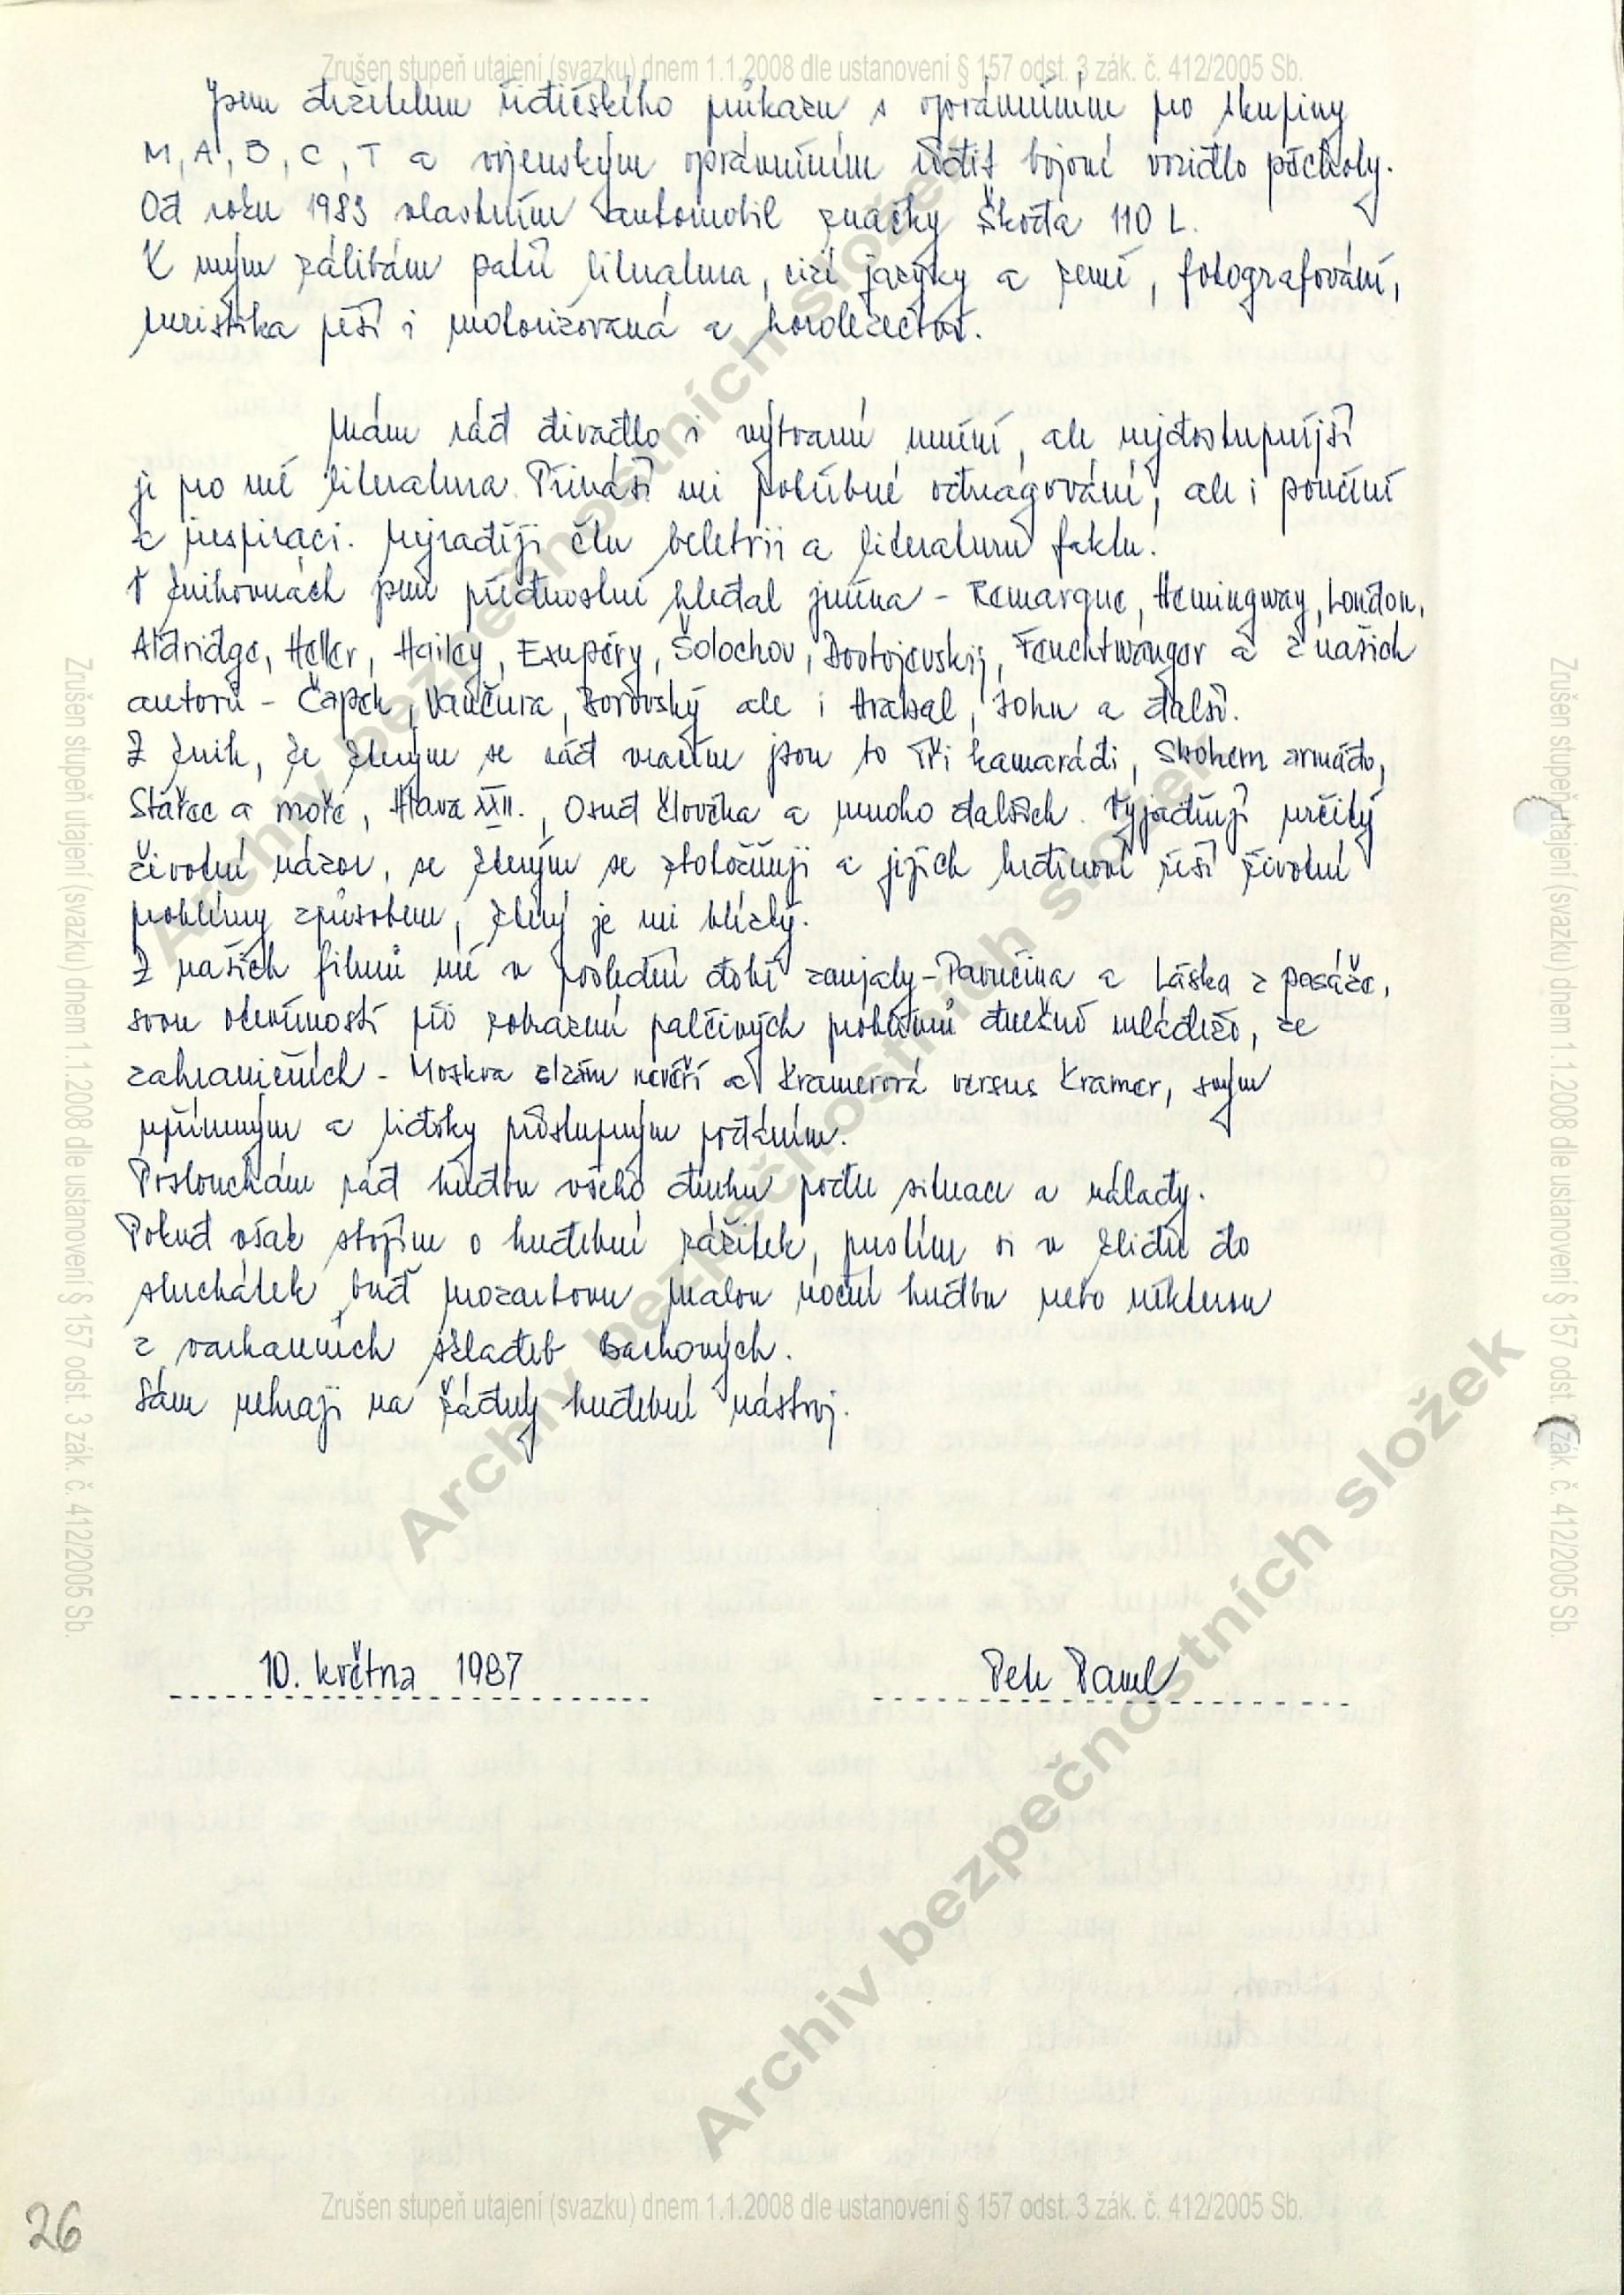 Zrušen stupeň utajení (svazku) dnem 1.1.2008 dle ustanovení § 157 odst. 3 zák. č. 412/2005 Sb.
Jsem držitelem řidičského průkazu s oprávněním pro skupiny
M, A, B, C, T a vojenským oprávněním řídit bojové vozidlo pěchoty.
Od roku 1983 vlastním automobil značky Škoda 110 L.
K mým zálibám patří literatura, cizí jazyky a země, fotografování,
turistika pěší i motorizovaná a horolezectví.
Mám rád divadlo i výtvarné umění, ale nejdostupnější
je pro mě literatura. Přináší mi potřebné odreagování, ale i poučení
a inspiraci. Nejraději čtu beletrii a literaturu faktu.
V knihovnách jsem přednostně hledal jména - Remarque, Hemingway, London,
Aldridge, Heller, Hailey, Exupéry, Šolochov, Dostojevskij, Feuchtwanger a z našich
autorů - Čapek, Vančura, Borovský ale i Hrabal, John a další.
Z knih, ke kterým se rád vracím jsou to Tři kamarádi, Sbohem armádo,
Stařec a moře, Hlava XXII., Osud člověka a mnoho dalších. Vyjadřují určitý
životní názor, se kterým se ztotožňuji a jejich hrdinové řeší životní
problémy způsobem, který je mi blízký.
Z našich filmů mě v poslední době zaujaly - Pavučina a Láska z pasáže,
svou otevřeností při zobrazení palčivých problémů dnešní mládeže, ze
zahraničních - Moskva slzám nevěří a Kramerová versus Kramer, svým
upřímným a lidsky přístupným podáním.
Poslouchám rád hudbu všeho druhu podle situace a nálady.
Pokud však stojím o hudební zážitek, pustím si v klidu do
sluchátek buď Mozartovu Malou noční hudbu nebo některou
z varhanních skladeb Bachových.
Sám nehraji na žádný hudební nástroj.
10. května 1987
Petr Pavel
Zrušen stupeň utajení (svazku) dnem 1.1.2008 dle ustanovení § 157 odst. 3 zák. č. 412/2005 Sb.
26
Zrušen stupeň utajení (svazku) dnem 1.1.2008 dle ustanovení § 157 odst. 3 zák. č. 412/2005 Sb.
Zrušen stupeň utajení (svazku) dnem 1.1.2008 dle ustanovení § 157 odst. 3 zák. č. 412/2005 Sb.
Archiv bezpečnostních složek
Archiv bezpečnostních složek
Archiv bezpečnostních složek